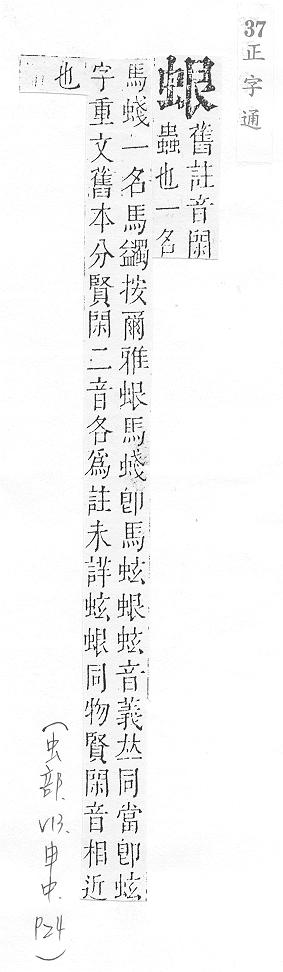 37
正字通
蛝 舊註音閑
蟲也一名
馬蝬一名馬蠲按爾雅蛝馬蝬卽馬蚿蛝蚿音義𠀤同當卽蚿
字重文舊本分賢閑二音各爲註未詳蚿蛝同物賢閑音相近
也
(虫部.V13.申中.P24)